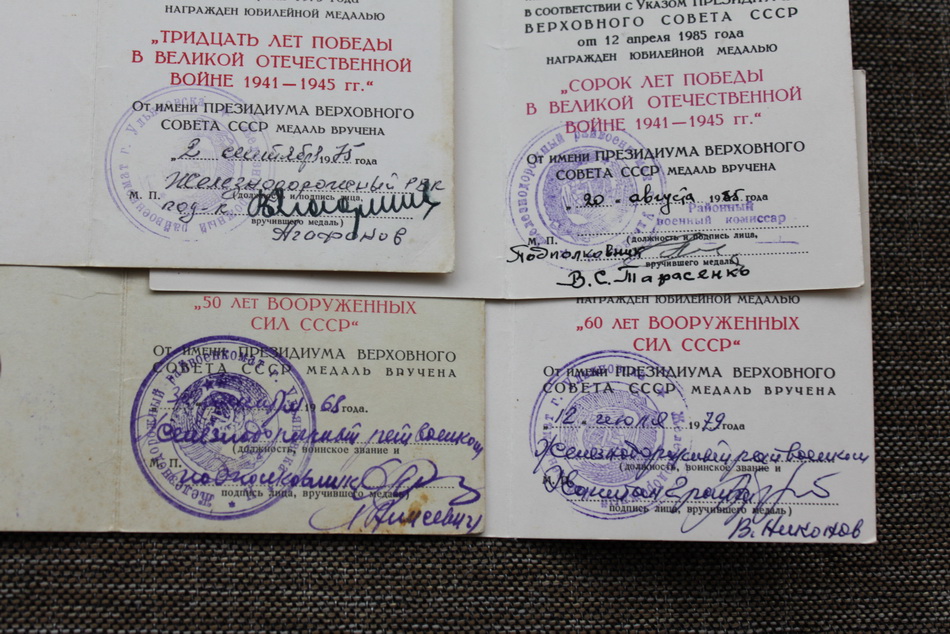 НАГРАЖДЕН ЮБИЛЕЙНОЙ МЕДАЛЬЮ
„ТРИДЦАТЬ ЛЕТ ПОБЕДЫ
В ВЕЛИКОЙ ОТЕЧЕСТВЕННОЙ
ВОЙНЕ 1941—1945 гг.“
От имени ПРЕЗИДИУМА ВЕРХОВНОГО
СОВЕТА СССР МЕДАЛЬ ВРУЧЕНА
„2 сентября 1975 года
Железнодорожный РВК
М. П. (должность и подпись лица,
вручившего медаль)
Агафонов
В СООТВЕТСТВИИ С УКАЗОМ ПРЕЗИДИУМА
ВЕРХОВНОГО СОВЕТА СССР
от 12 апреля 1985 года
НАГРАЖДЕН ЮБИЛЕЙНОЙ МЕДАЛЬЮ
„СОРОК ЛЕТ ПОБЕДЫ
В ВЕЛИКОЙ ОТЕЧЕСТВЕННОЙ
ВОЙНЕ 1941—1945 гг.“
От имени ПРЕЗИДИУМА ВЕРХОВНОГО
СОВЕТА СССР МЕДАЛЬ ВРУЧЕНА
„20 августа 1985 года
Районный
военный комиссар
М. П. (должность и подпись лица,
Подполковник
вручившего медаль)
В.С. Тарасенко
„50 ЛЕТ ВООРУЖЕННЫХ
СИЛ СССР“
От имени ПРЕЗИДИУМА ВЕРХОВНОГО
СОВЕТА СССР МЕДАЛЬ ВРУЧЕНА
1968 года.
райвоенком
(должность, воинское звание и
М. П.
подполковник
подпись лица, вручившего медаль)
НАГРАЖДЕН ЮБИЛЕЙНОЙ МЕДАЛЬЮ
„60 ЛЕТ ВООРУЖЕННЫХ
СИЛ СССР“
От имени ПРЕЗИДИУМА ВЕРХОВНОГО
СОВЕТА СССР МЕДАЛЬ ВРУЧЕНА
12 1979 года
Железнодорожный райвоенком
(должность, воинское звание и
подпись лица, вручившего медаль)
В. Никонов